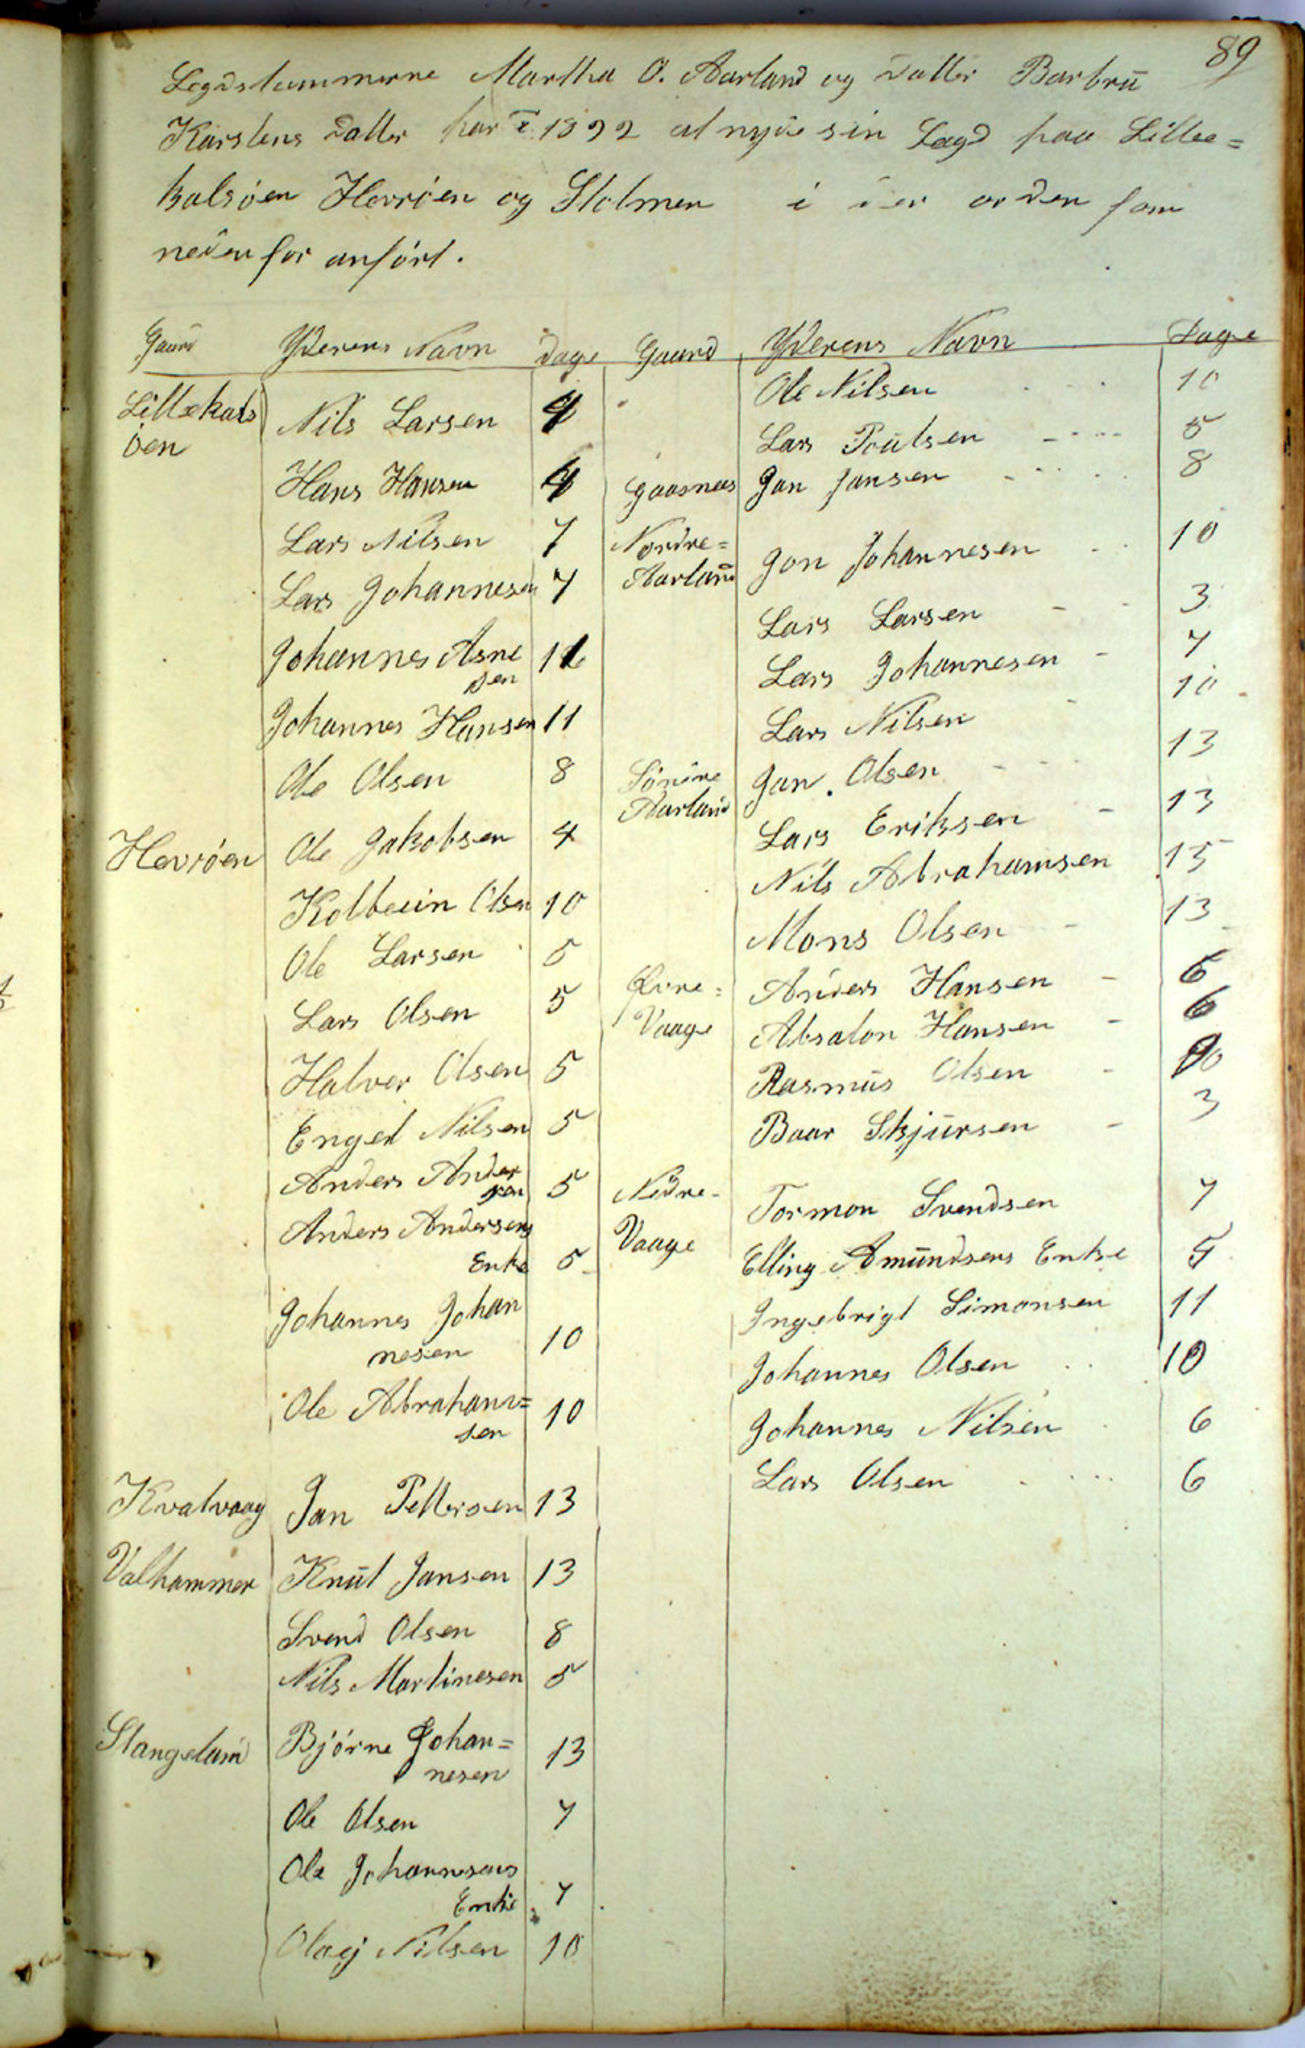 89
Legdslemmerne Martha O. Aarland og Datter Barbru
Karstens Datter har i 1892 at nyde sin Lægd paa Lille=
kalsøen Hevrøen og Stolmen i den orden som
nedenfor anført.
Gaard Yderens Navn Dage Gaard Yderens Navn Dage
Lillekals Nils Larsen 4
øen
Hans Hansen 4
Lars Nilsen 7
Lars Johannesen 7
Johannes Asne
sen 11
Johannes Hansen 11
Ole Olsen 8
Hevrøen Ole Jakobsen 4
Kolbein Olsen 10
Ole Larsen 5
Lars Olsen 5
Halvor Olsen 5
Engel Nilsen 5
Anders Ander
sen 5
Anders Andersens
Enke 5
Johannes Johan
nesen 10
Ole Abraham=
sen 10
Kvalvaag Jan Pettersen 13
Valhammer Knut Jansen 13
Svend Olsen 8
Nils Martinesen 5
Stangeland Bjørne Johan=
nesen 13
Ole Olsen 7
Ole Johannesens
Enke 7
Olaej Nilsen 10
Ole Nilsen 10
Lars Poulsen 5
Gaasnees Jan Jansen 8
Nordre=
Aarland Jon Johannesen 10
Lars Larsen 3
Lars Johannesen 7
Lars Nilsen 10
Söndre Jan Olsen 13
Aarland Lars Eriksen 13
Nils Abrahamsen 15
Mons Olsen 13
Øvre= Anders Hansen 6
Vaage Absalon Hansen 6
Rasmus Olsen 10
Baar Skjursen 3
Nedre- Tormon Svendsen 7
Vaage Elling Amundsens Enke 5
Ingebrigt Simonsen 11
Johannes Olsen 10
Johannes Nilsen 6
Lars Olsen 6